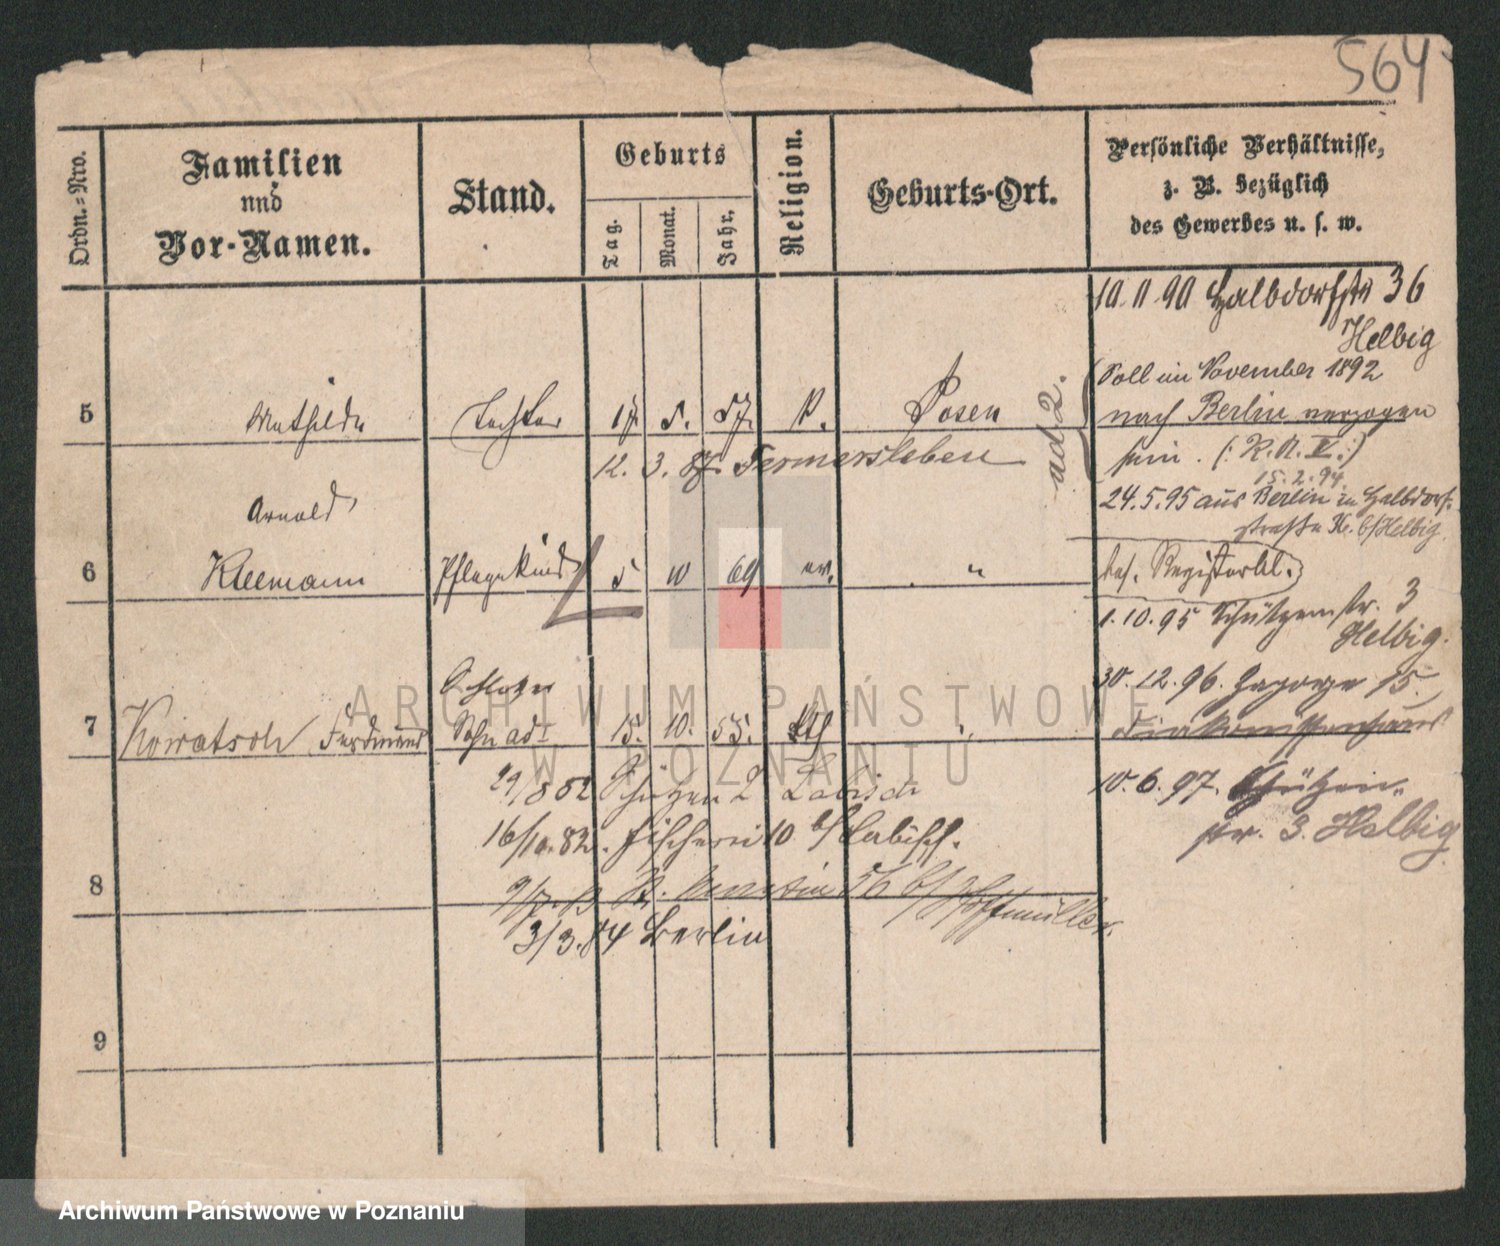 564
Ordn.-Nro.
Familien
und
Vor-Namen.
Stand.
Geburts
Tag.
Monat.
Jahr.
Religion.
Geburts-Ort.
Persönliche Verhältnisse,
z. B. bezüglich
des Gewerbes u. s. w.
10.11.90 Halbdorfstr 36
Helbig
5 Mathilde Tochter 17. 5. 57. k. Posen
ad 2.
Soll im November 1892
nach Berlin verzogen
sein. (: R.A. V :)
15.2.94.
12. 3. 87. Fermersleben
24.5.95 aus Berlin in Halbdorf-
straße b/Helbig.
Arnold
6 Kleemann Pflegekind 5 10 69 ev. "
bes. Registerbl.
1.10.95 Schützenstr. 3
Helbig.
30.12.96. 15.
Diakonissenhaus
7 Kowatsch Ferdinand
Sohn ad 1 15. 10. 55. kth "
29/8 82 Schützen 2 Labisch
10.6.97. Schützen-
str. 3. Helbig
16/10.82. Fischerei 10 b/ Labisch.
8
56 b/ Hoffmüller.
3/3.84 Berlin
9
ARCHIWUM PAŃSTWOWE
W POZNANIU
Archiwum Państwowe w Poznaniu